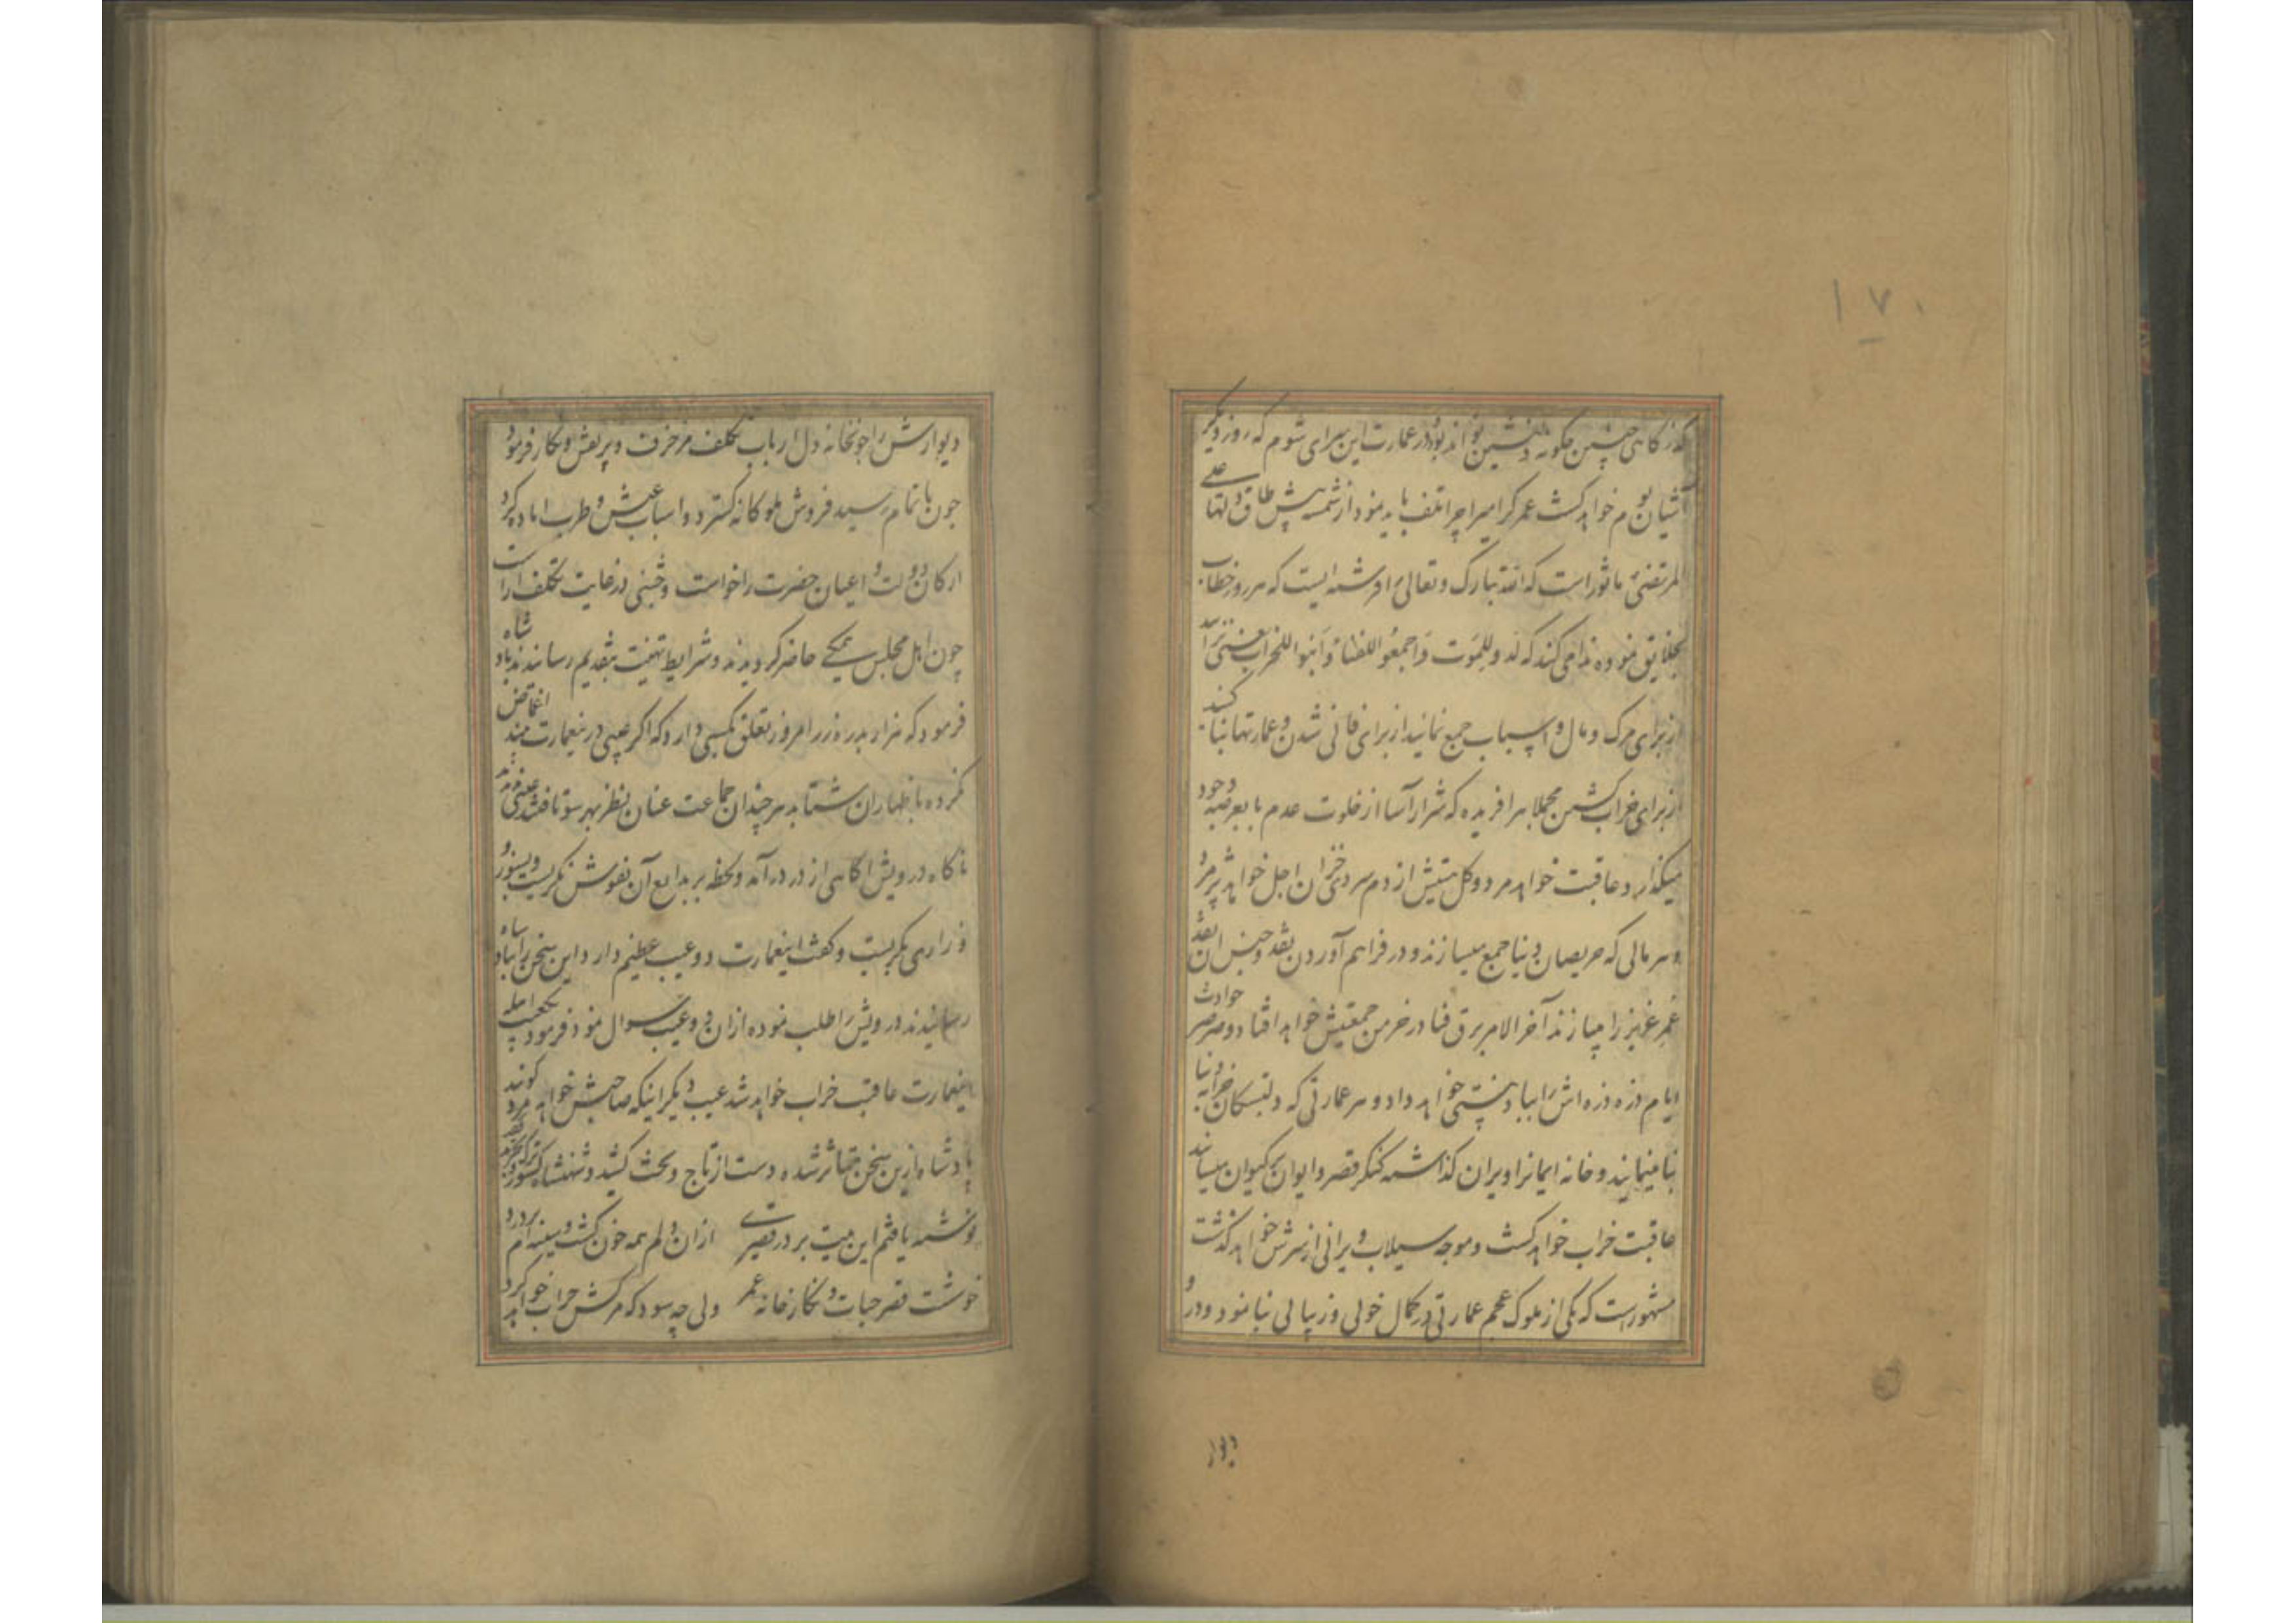 ۱۷۰
گذرگاهی چنین چگونه دلنشین تواند بود در عمارت این سرای شوم که روز دیگر
آشیان بوم خواهد گشت عمر گرامیرا چرا تلف باید نمود از شمسه پیش طاق ولها علی
المرتضی ماثور است که الله تبارک و تعالی را فرشته ایست که هر روز خطاب
بخلایق نموده ندا می کند که لدو للموت واجمعوا للفناء وابنوا للخراب یعنی بزائید
از برای مرک و مال و اسباب جمع نمائید از برای فانی شدن و عمارتها بنا کنید
از برای خراب گشتن مجملا هر آفریده که شرارآسا از خلوت عدم پا بعرصه وجود
میگذارد عاقبت خواهد مرد و گل هستیش از دم سردی خزان اجل خواهد پژمرد
و هر مالی که حریصان دنیا جمع میسازند و در فراهم آوردن نقد و جنس ان نقد
عمر عزیز را میبازند آخر الامر برق فنا در خرمن جمعیتش خواهد افتاد و صرصر حوادث
ایام ذره ذره اش را بباد نیستی خواهد داد و هر عمارتی که دلبستگان خرابه دنیا
بنا مینمایند و خانه ایمانرا ویران گذاشته کنگر قصر و ایوان بکیوان میسایند
عاقبت خراب خواهد گشت و موجه سیلاب ویرانی از سرش خواهد گذشت
مشهور است که یکی از ملوک عجم عمارتی در کمال خوبی و زیبائی بنا نمود و در و
دیوارش را چون خانه دل ارباب تکلف مزخرف و پر نقش و نگار فرمود
چون باتمام رسید فروش ملوکانه گسترد و اسباب عیش و طرب اماده کرد
ارکان دولت و اعیان حضرت را خواست و جشنی در غایت تکلف اراست
چون اهل مجلس همگی حاضر گردیدند و شرایط تهنیت بتقدیم رسانیدند پادشاه
فرمود که هزار بدره زر امروز تعلق بکسی دارد که اگر عیبی درینعمارت بیند اغماض
نکرده باظهار ان شتابد هر چند ان جماعت عنان نظر بهر سو تافتند عیبی نیافتند
ناگاه درویش اگاهی از در درآمد و لحظه بر بدایع آن نقوش نگریست و بسوز و
زاری بگریست و گفت اینعمارت دو عیب عظیم دارد این سخن را بپادشاه
رسانیدند درویش را طلب نموده از ان دو عیب سوال نمود فرمود
اینعمارت عاقبت خراب خواهد شد عیب دیگر اینکه صاحبش خواهد مرد گویند
پادشاه ازین سخن متاثر شده دست از تاج و تخت کشید و شهنشاه کشور
نوشته یافتم این بیت بر در قصری از ان دلم همه خون گشت و سینه ام
خوشست قصر حیات و نگارخانه عمر ولی چه سود که مرگش خراب خواهد کرد